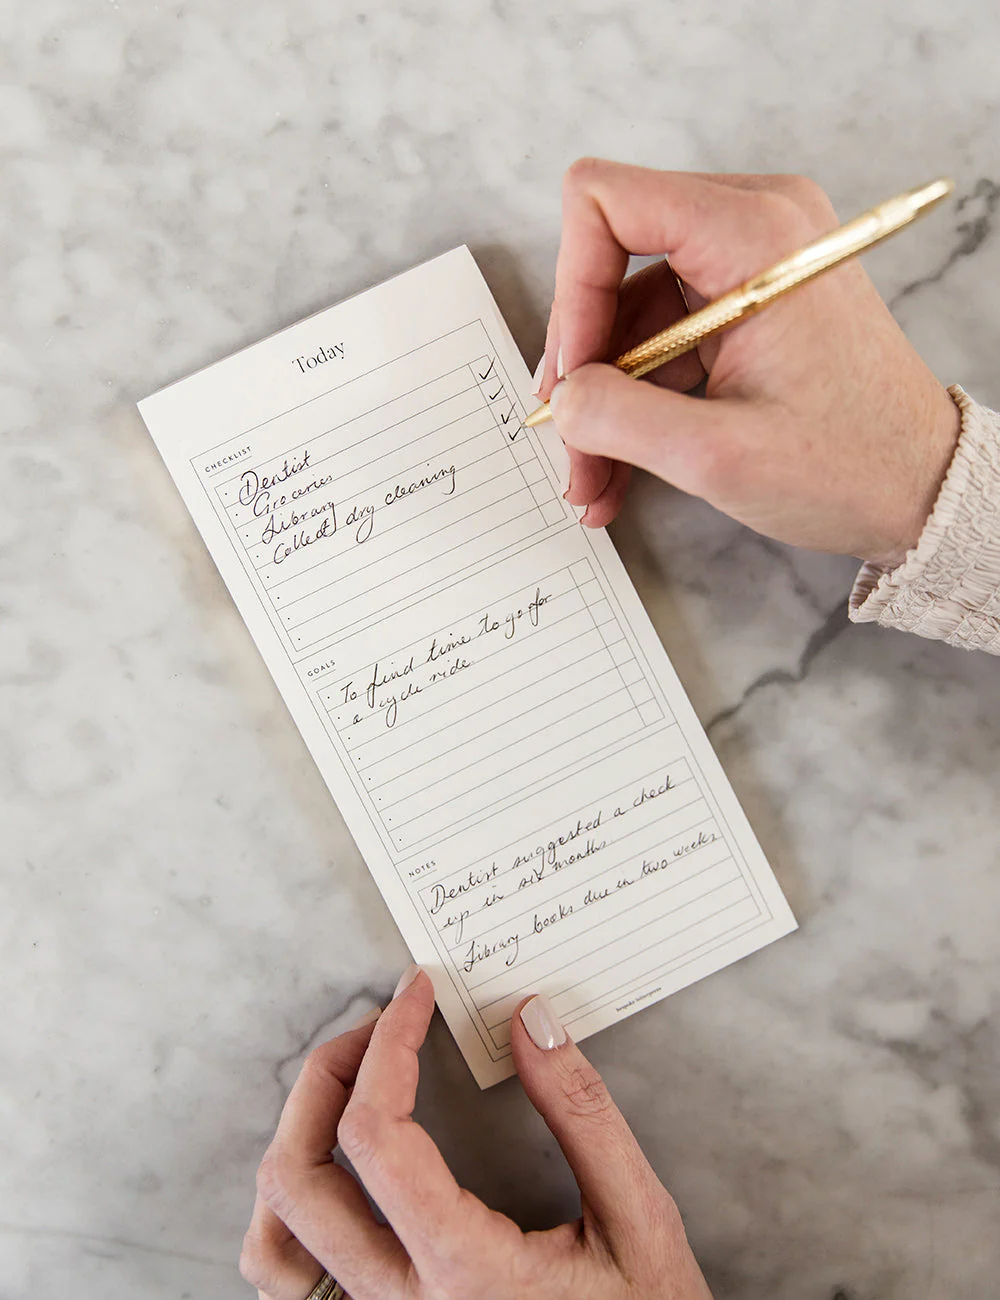 Today
CHECKLIST
Dentist
Groceries
Library
Collect dry cleaning
GOALS
To find time to go for
a cycle ride.
NOTES
Dentist suggested a check
up in six months
Library books due in two weeks
bespoke letterpress